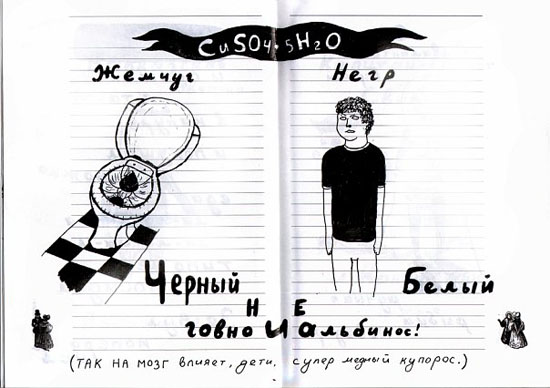 CuSO4·5H2O
Жемчуг Негр
Черный Белый
Н Е
говно и альбинос!
(ТАК НА МОЗГ ВЛИЯЕТ, ДЕТИ, СУПЕР МЕДНЫЙ КУПОРОС.)